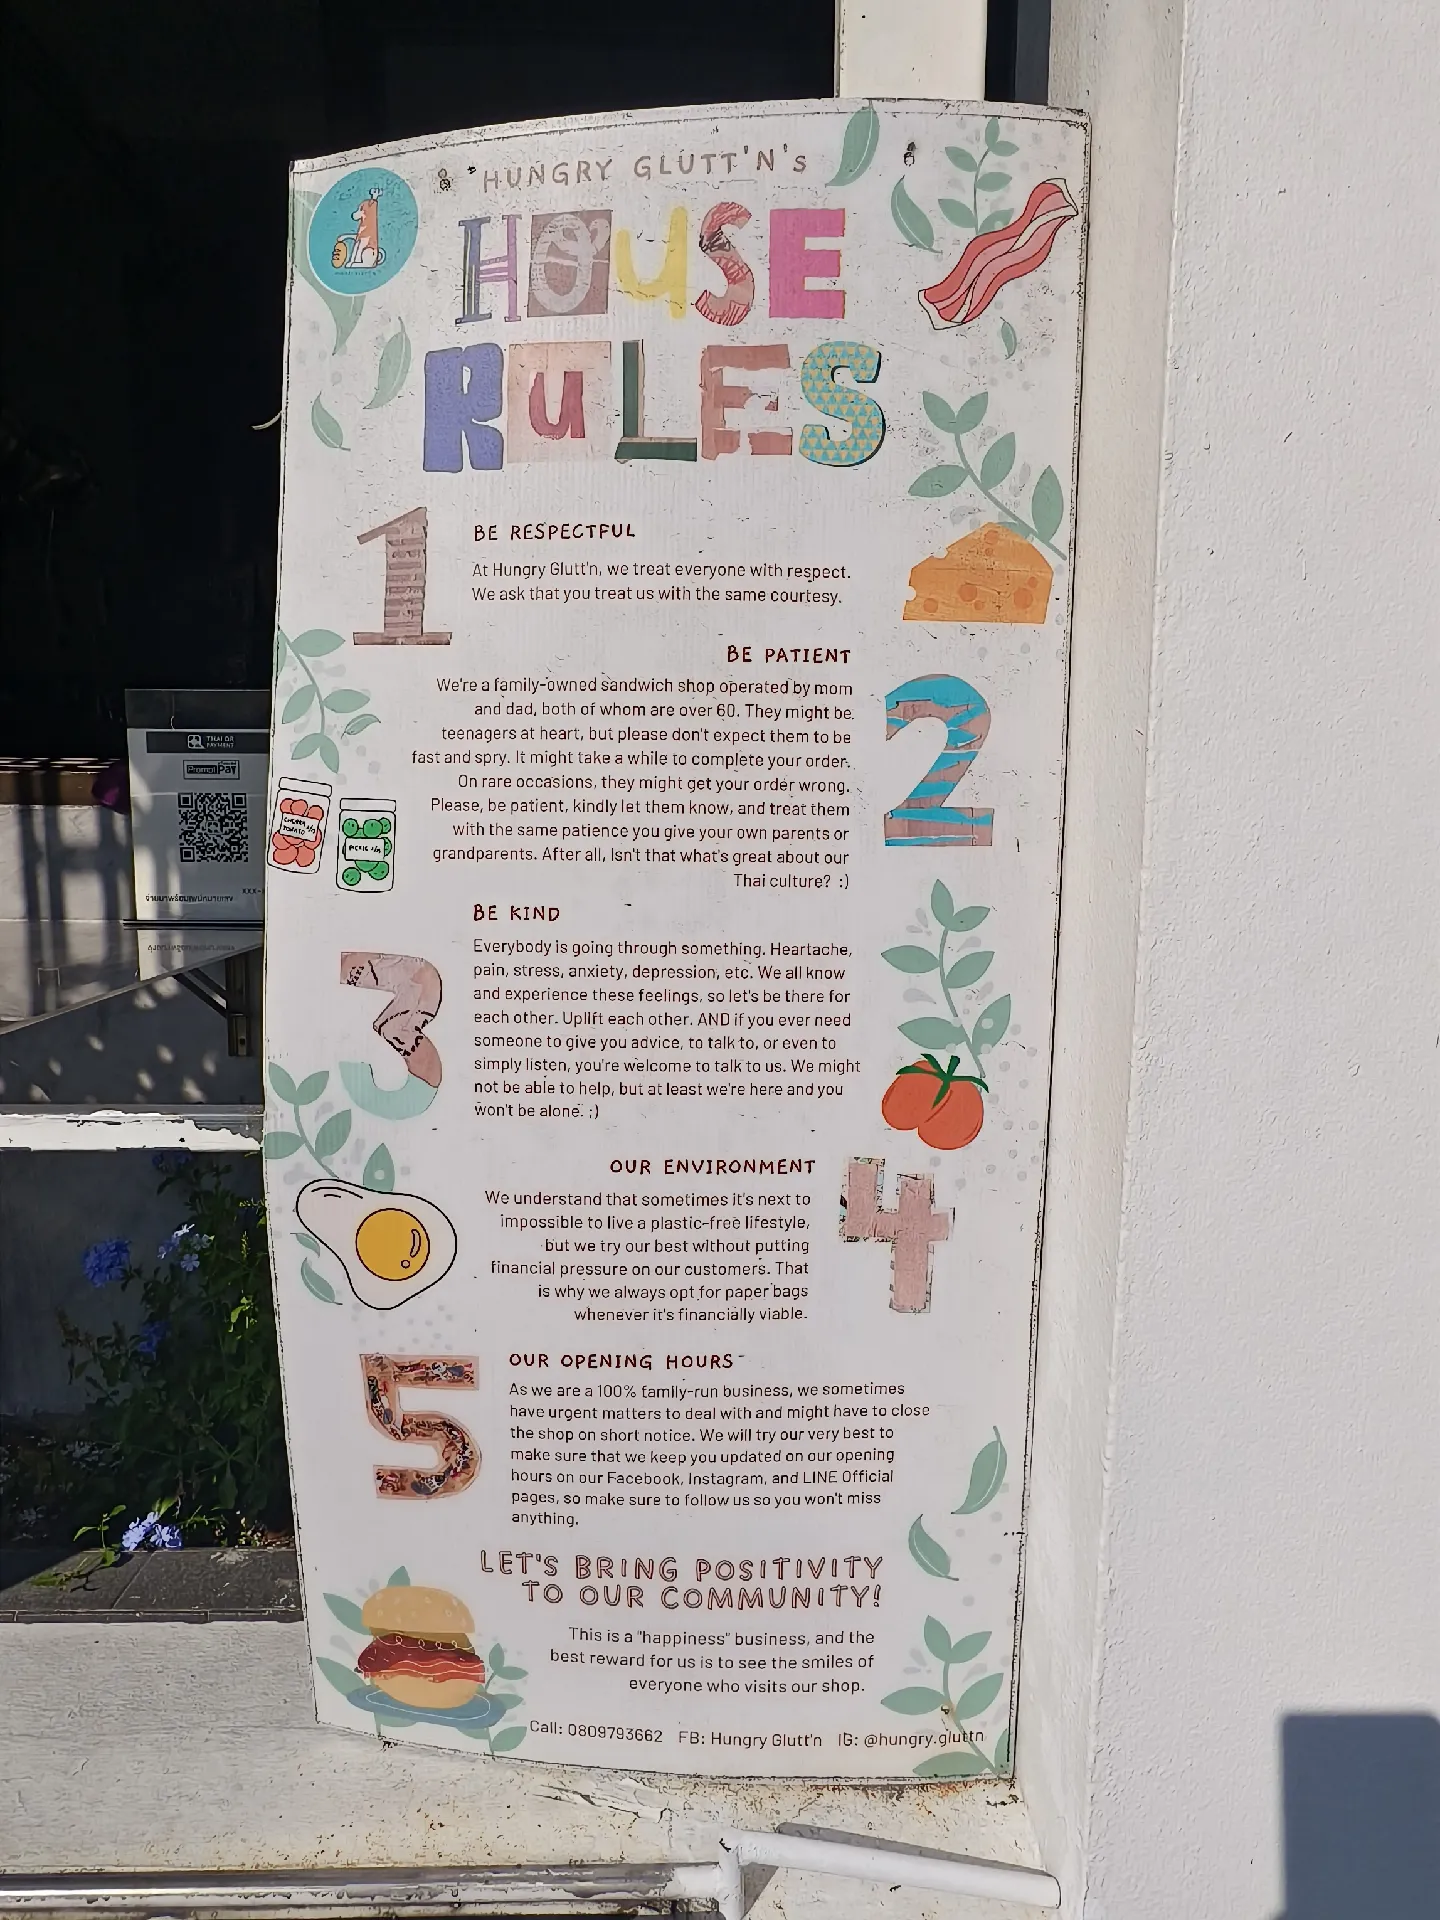 "HUNGRY GLUTT'N's
HOUSE
RULES
1
BE RESPECTFUL
At Hungry Glutt'n, we treat everyone with respect.
We ask that you treat us with the same courtesy.
BE PATIENT
2
We're a family-owned sandwich shop operated by mom
and dad, both of whom are over 60. They might be
teenagers at heart, but please don't expect them to be
fast and spry. It might take a while to complete your order.
On rare occasions, they might get your order wrong.
Please, be patient, kindly let them know, and treat them
with the same patience you give your own parents or
grandparents. After all, isn't that what's great about our
Thai culture? :)
THAI QR
PAYMENT
PromptPay
CHERRY
TOMATO
BE KIND
3
Everybody is going through something. Heartache,
pain, stress, anxiety, depression, etc. We all know
and experience these feelings, so let's be there for
each other. Uplift each other. AND if you ever need
someone to give you advice, to talk to, or even to
simply listen, you're welcome to talk to us. We might
not be able to help, but at least we're here and you
won't be alone. :)
OUR ENVIRONMENT
4
We understand that sometimes it's next to
impossible to live a plastic-free lifestyle,
but we try our best without putting
financial pressure on our customers. That
is why we always opt for paper bags
whenever it's financially viable.
5
OUR OPENING HOURS
As we are a 100% family-run business, we sometimes
have urgent matters to deal with and might have to close
the shop on short notice. We will try our very best to
make sure that we keep you updated on our opening
hours on our Facebook, Instagram, and LINE Official
pages, so make sure to follow us so you won't miss
anything.
LET'S BRING POSITIVITY
TO OUR COMMUNITY!
This is a "happiness" business, and the
best reward for us is to see the smiles of
everyone who visits our shop.
Call: 0809793662 FB: Hungry Glutt'n IG: @hungry.gluttn